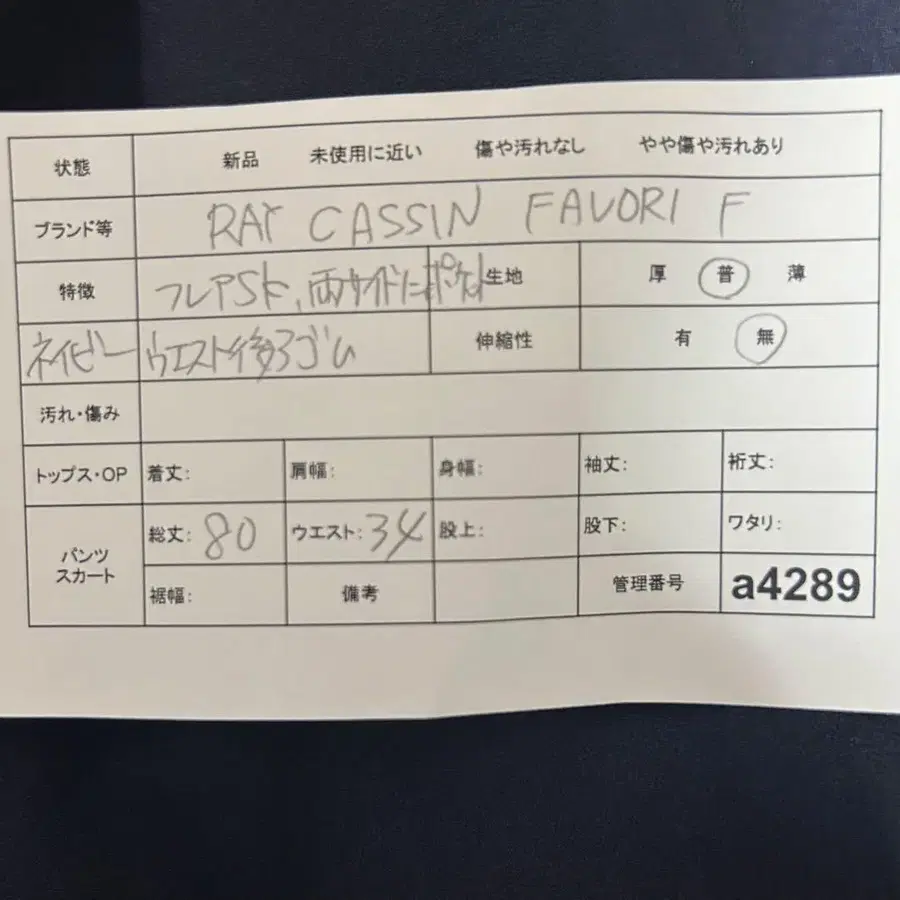 状態 新品 未使用に近い 傷や汚れなし やや傷や汚れあり
ブランド等 RAY CASSIN FAVORI F
特徴 フレアSK、両サイドにポケット 生地 厚 普 薄
ネイビー ウエスト後ろゴム 伸縮性 有 無
汚れ・傷み
トップス・OP 着丈: 肩幅: 身幅: 袖丈: 裄丈:
パンツ スカート 総丈: 80 ウエスト: 34 股上: 股下: ワタリ:
裾幅: 備考 管理番号 a4289